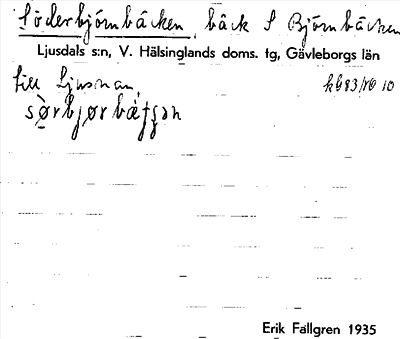 Söderbjörnbäcken, bäck S Björnbäcken
Ljusdals s:n, V. Hälsinglands doms. tg, Gävleborgs län
till Ljusnan,
Erik Fällgren 1935